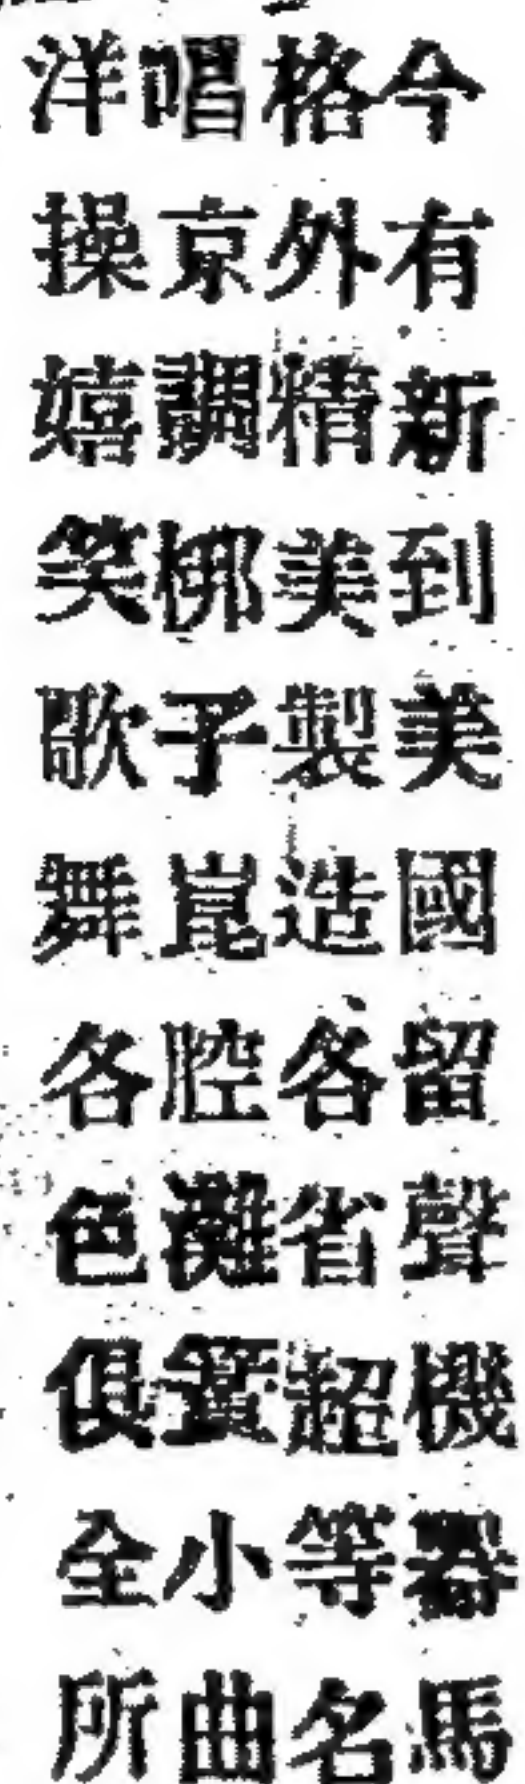 今有新到美國留聲機器馬
格外精美製造各省超等名
唱京調梆子崑腔灘簧小曲
洋操嬉笑歌舞各色俱全所